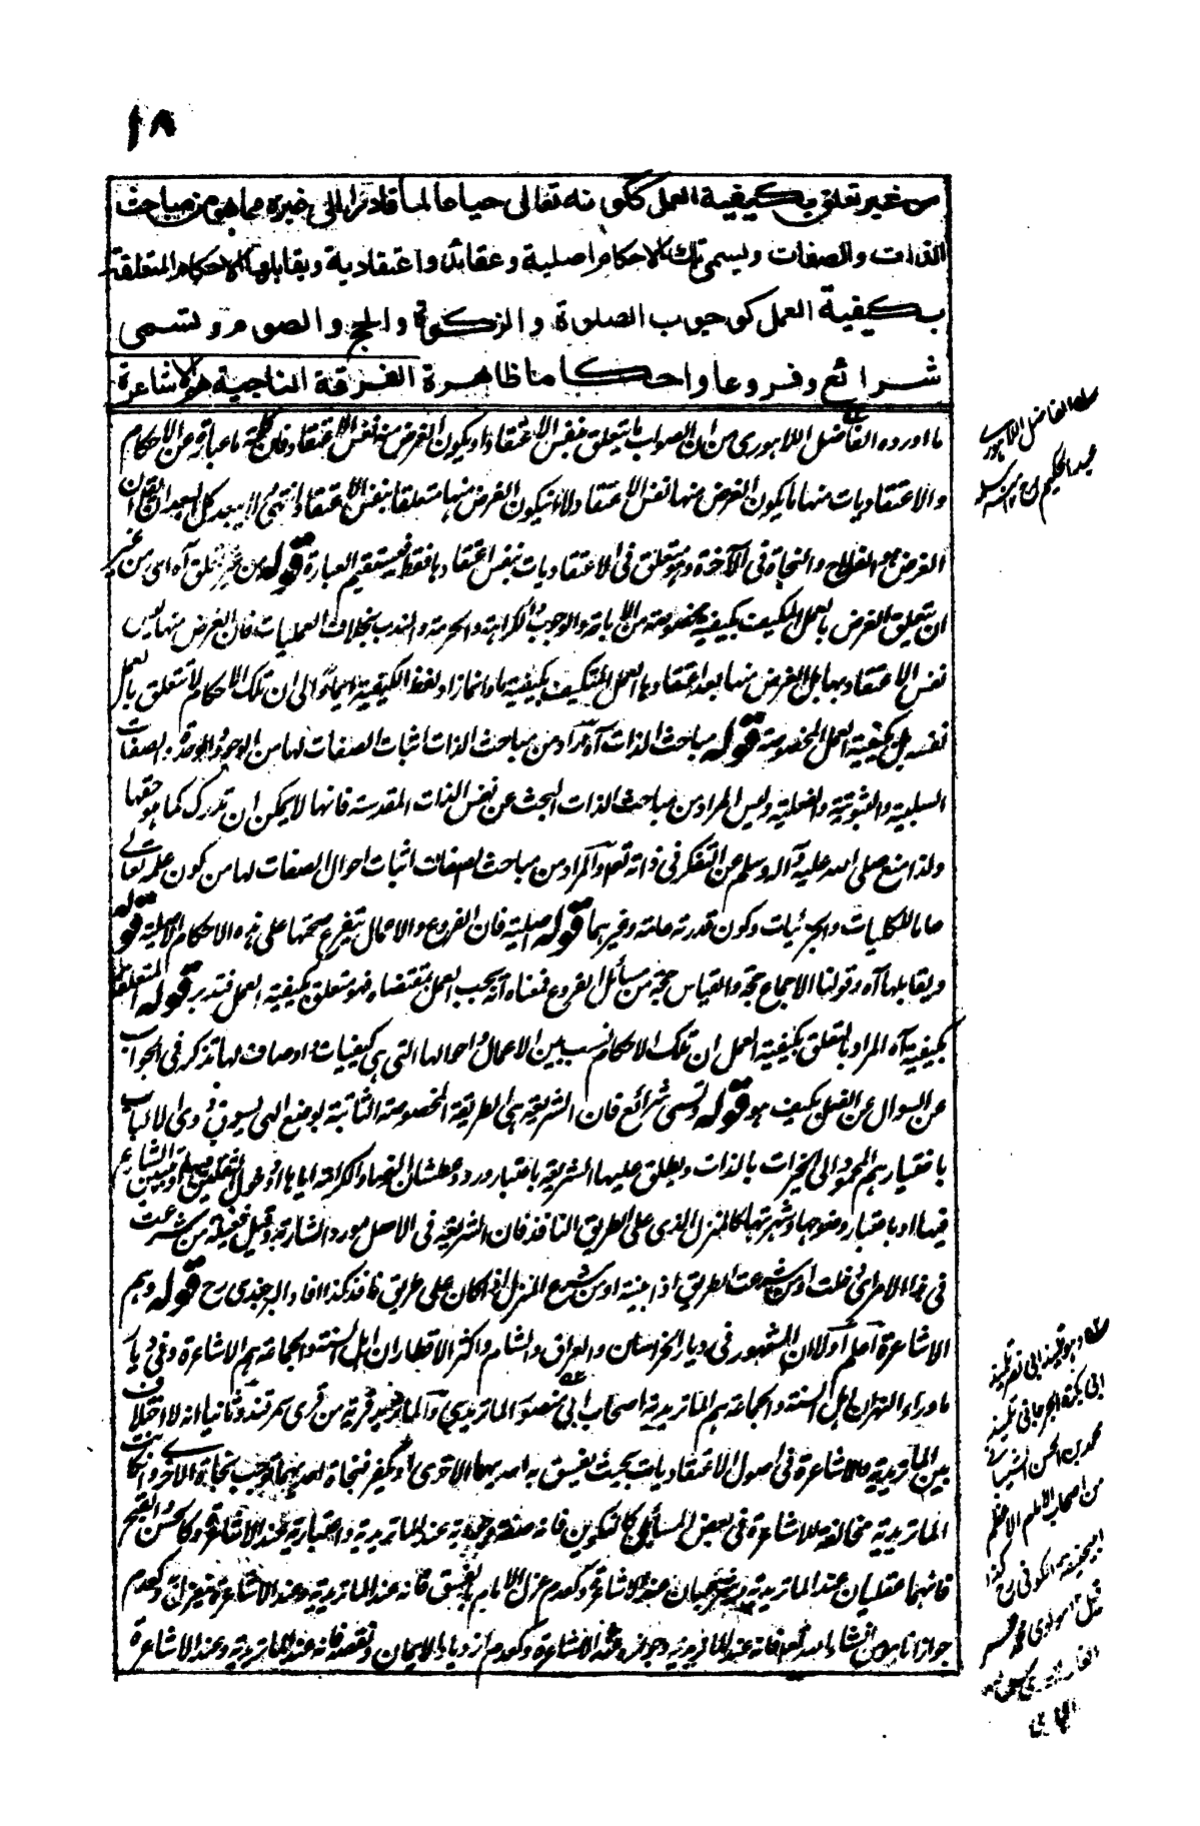 ١٨
من غير تعلق بكيفية العمل ككونه تعالى حيا عالما قادرا الى غيره مما هو من مباحث
الذات والصفات ويسمى تلك الاحكام اصلية وعقائد واعتقادية ويقابلها الاحكام المتعلقة
بكيفية العمل كوجوب الصلوة والزكوة والحج والصوم وتسمى
شرائع وفروعا واحكاما ظاهرة الفرقة الناجية هم الاشاعرة
ما اورده الفاضل اللاهورى من ان الصواب ما يتعلق بنفس الاعتقاد او يكون الغرض منه نفس الاعتقاد فان كلمة ما عبارة عن الاحكام
والاعتقاديات منها ما يكون الغرض منها نفس الاعتقاد لا ان يكون الغرض منها متعلقا بنفس الاعتقاد انتهى
الغرض هو الفلاح والنجاة فى الآخرة وهو متعلق فى الاعتقاديات بنفس اعتقادها فقط فيستقيم العبارة قوله من غير تعلق آه اى من غير
ان يتعلق الغرض بالعمل المكيف بكيفية مخصوصة من الاباحة والوجوب والكراهة والحرمة والندب بخلاف العمليات فان الغرض منها ليس
نفس الاعتقاد بها بل الغرض منها بعد اعتقادها العمل المتكيف بكيفية ما وانما زاد لفظ الكيفية ايماء الى ان تلك الاحكام لا تتعلق بالعمل
نفسه بل بكيفية العمل المخصوصة قوله مباحث الذات آه اراد من مباحث الذات اثبات الصفات لها من الوجود والوحدة والصفات
السلبية والثبوتية والفعلية وليس المراد من مباحث الذات البحث عن نفس الذات المقدسة فانها لا يمكن ان تدرك كما هو حقها
ولذا منع صلى الله عليه وآله وسلم عن التفكر فى ذاته تعالى والمراد من مباحث الصفات اثبات احوال الصفات لها من كون علمه تعالى
عاما للكليات والجزئيات وكون قدرته عامة وغيرهما قوله اصلية فان الفروع والاعمال يتفرع صحتها على هذه الاحكام الاصلية قوله
ويقابلها آه وقولنا الاجماع حجة والقياس حجة من مسائل الفروع فمعناه انه يجب العمل بمقتضاه فهو متعلق بكيفية العمل فتدبر قوله المتعلقة
بكيفية آه المراد بالتعلق بكيفية العمل ان تلك الاحكام نسب بين الاعمال واحوالها التى هى كيفيات واوصاف لها تذكر فى الجواب
عن السوال عن الفعل بكيف هو قوله وتسمى شرائع فان الشريعة هى الطريقة المخصوصة الثابتة بوضع الهى يسوق ذوى الالباب
باختيارهم المحمود الى الخيرات بالذات ويطلق عليها الشريعة باعتبار ورود
فيها او باعتبار وضوحها وشهرتها كالمنزل الذى على الطريق النافذ فان الشريعة فى الاصل مورد الشاربة وقيل فعيلة من شرعت
فى هذا الامر اى دخلت او من شرعت الطريق اذا بينته او من شرع المنزل اذا كان على طريق نافذ كذا افاد البرجندى رح قوله وهم
الاشاعرة اعلم اولا ان المشهور فى ديار الخراسان والعراق والشام واكثر الاقطار ان اهل السنة والجماعة هم الاشاعرة وفى ديار
ماوراء النهر ان اهل السنة والجماعة هم الماتريدية اصحاب ابى منصور الماتريدى والماتريد قرية من قرى سمرقند وثانيا انه لا اختلاف
بين الماتريدية والاشاعرة فى اصول الاعتقاديات بحيث يفسق به احديهما الاخرى او يكفر فنجاة احديهما توجب نجاة الاخرى وان كانت
الماتريدية مخالفة للاشاعرة فى بعض المسائل كالتكوين فانه صفة وجودية عند الماتريدية واعتبارية عند الاشاعرة وكالحسن والقبح
فانهما عقليان عند الماتريدية وشرعيان عند الاشاعرة وكعدم عزل الامام بالفسق فانه عند الماتريدية وعند الاشاعرة ينعزل وكعدم
جواز انا مومن انشاء الله تعالى فانه عند الماتريدية وجوازه عند الاشاعرة وكعدم ازدياد الايمان ونقصه فانه عند الماتريدية وعند الاشاعرة
سله الفاضل اللاهورى
عبد الحكيم
تلميذ
ابى بكر الجرجانى تلميذ
محمد بن الحسن الشيبانى
من اصحاب الامام الاعظم
ابيحنيفة الكوفى رح كذا